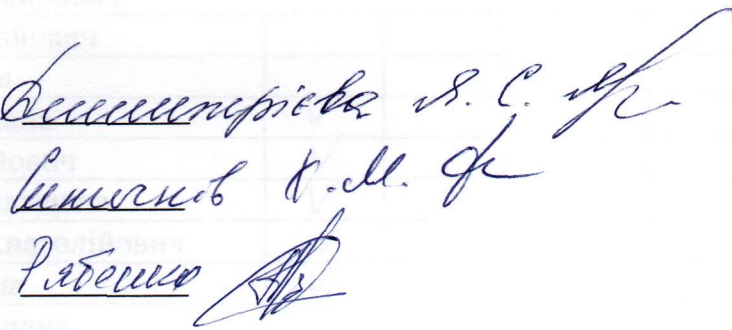 Дмитрієва Я. С.
Синичнов К. М.
Рябенко